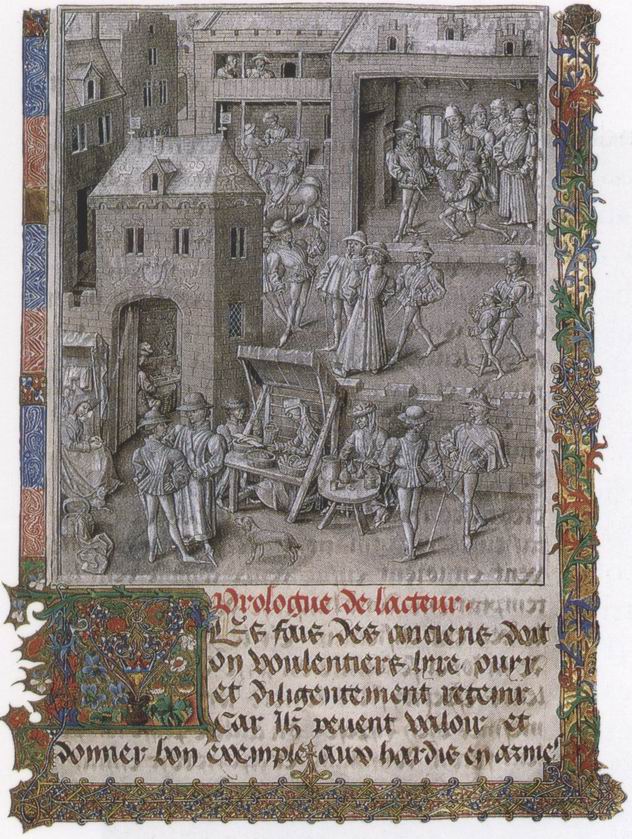 Prologue de lacteur.
Es fais des anciens doit
on voulentiers lyre ouyr
et diligentement retenir
Car Ilz peuent valoir et
donner bon exemple aux hardis en armes